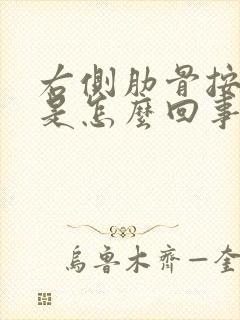 右側肋骨按
是怎麼回事
烏魯木齊—奎